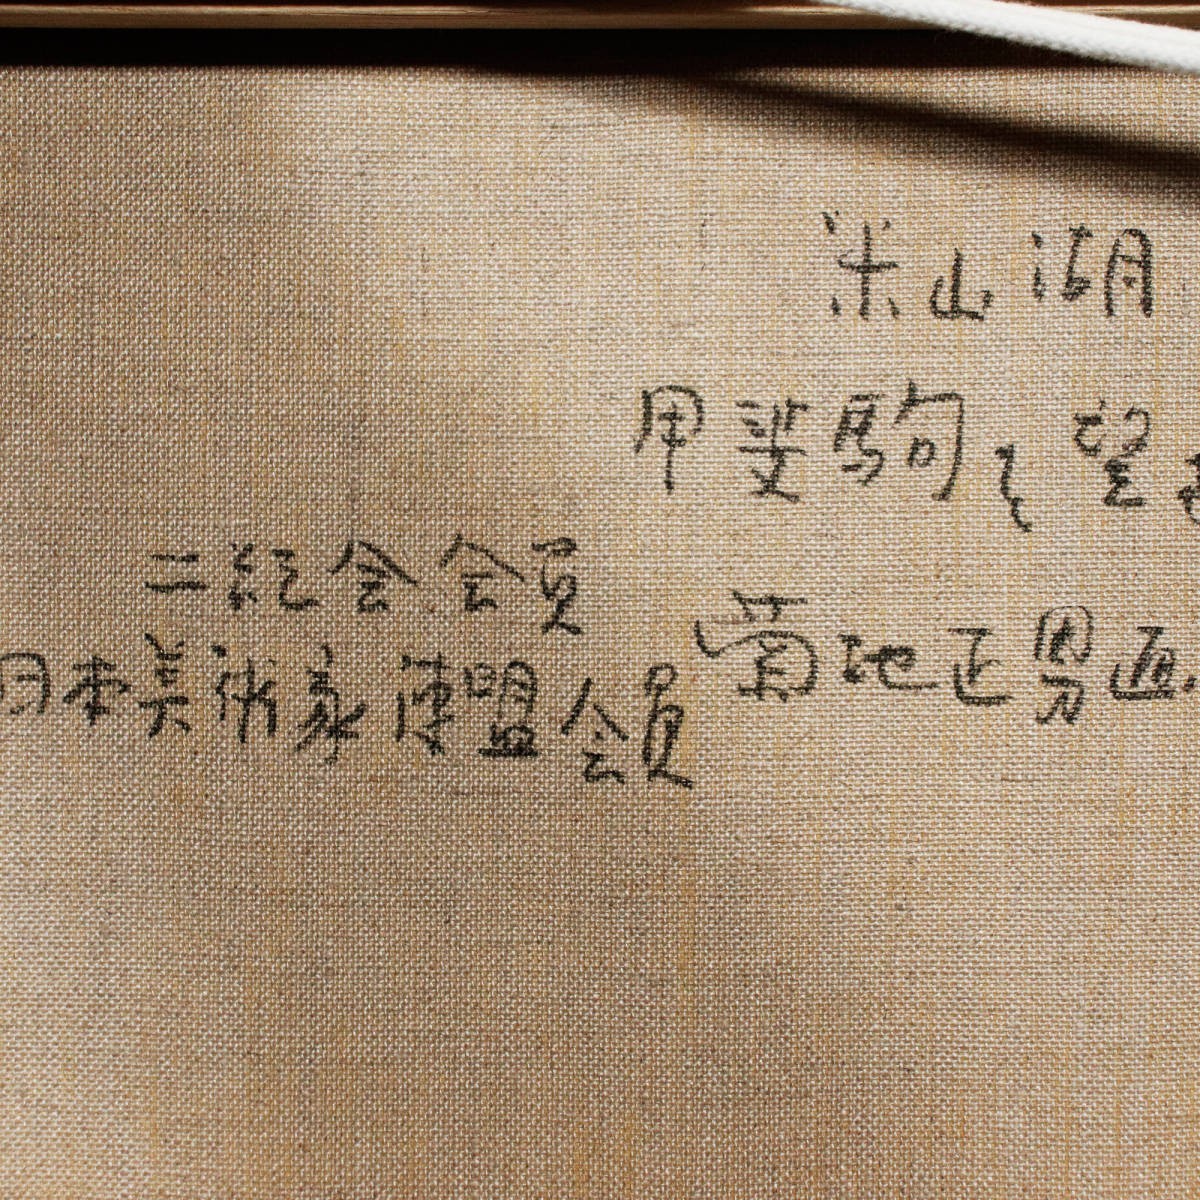 米山湖
甲斐駒を望む
二紀会会員 菊池正男画
日本美術家連盟会員